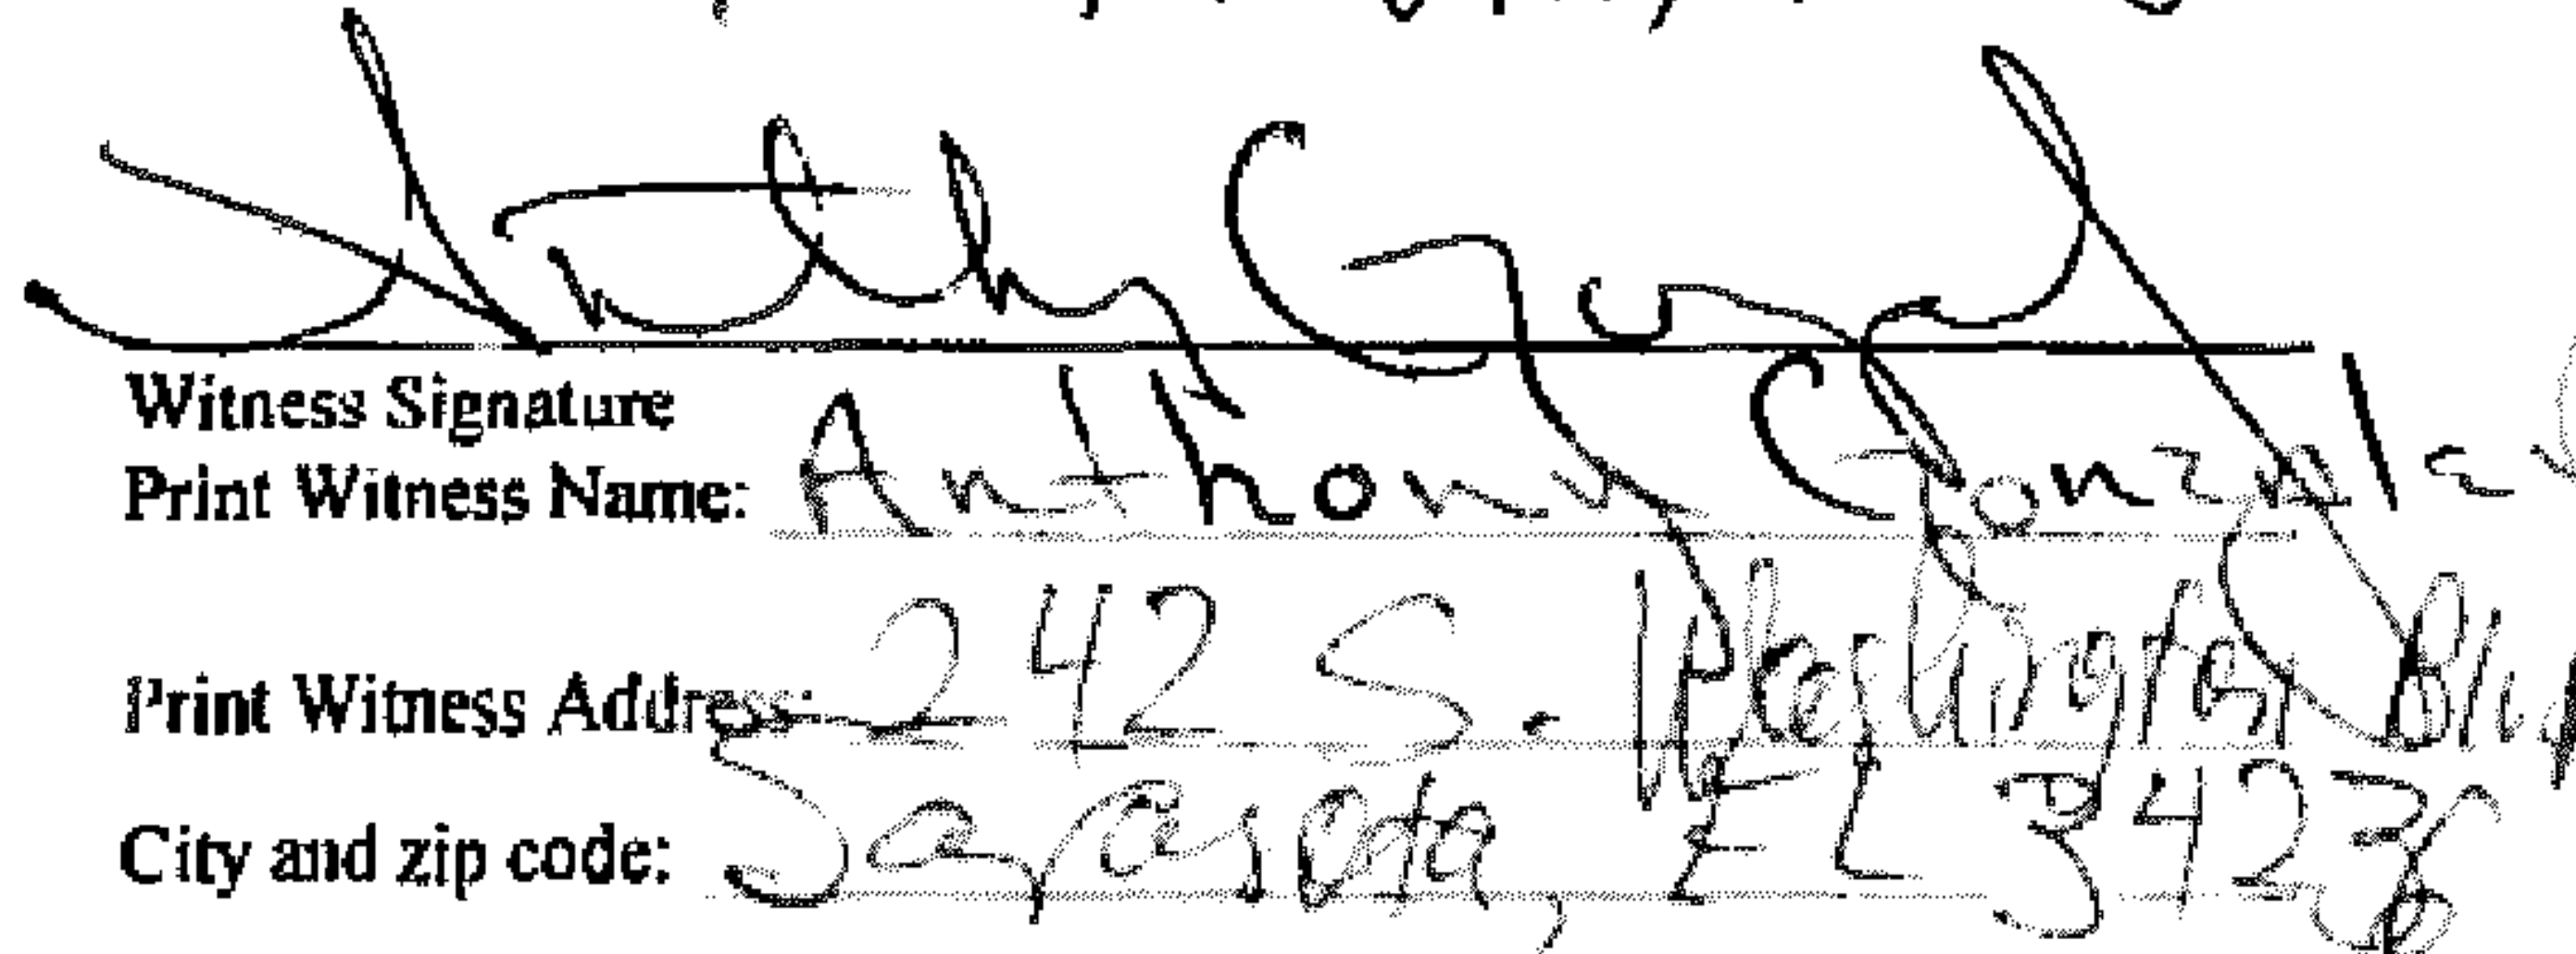 Witness Signature
Print Witness Name: Anthony Gonzale
Print Witness Address: 242 S. Washington Blvd
City and zip code: Sarasota, FL 34236